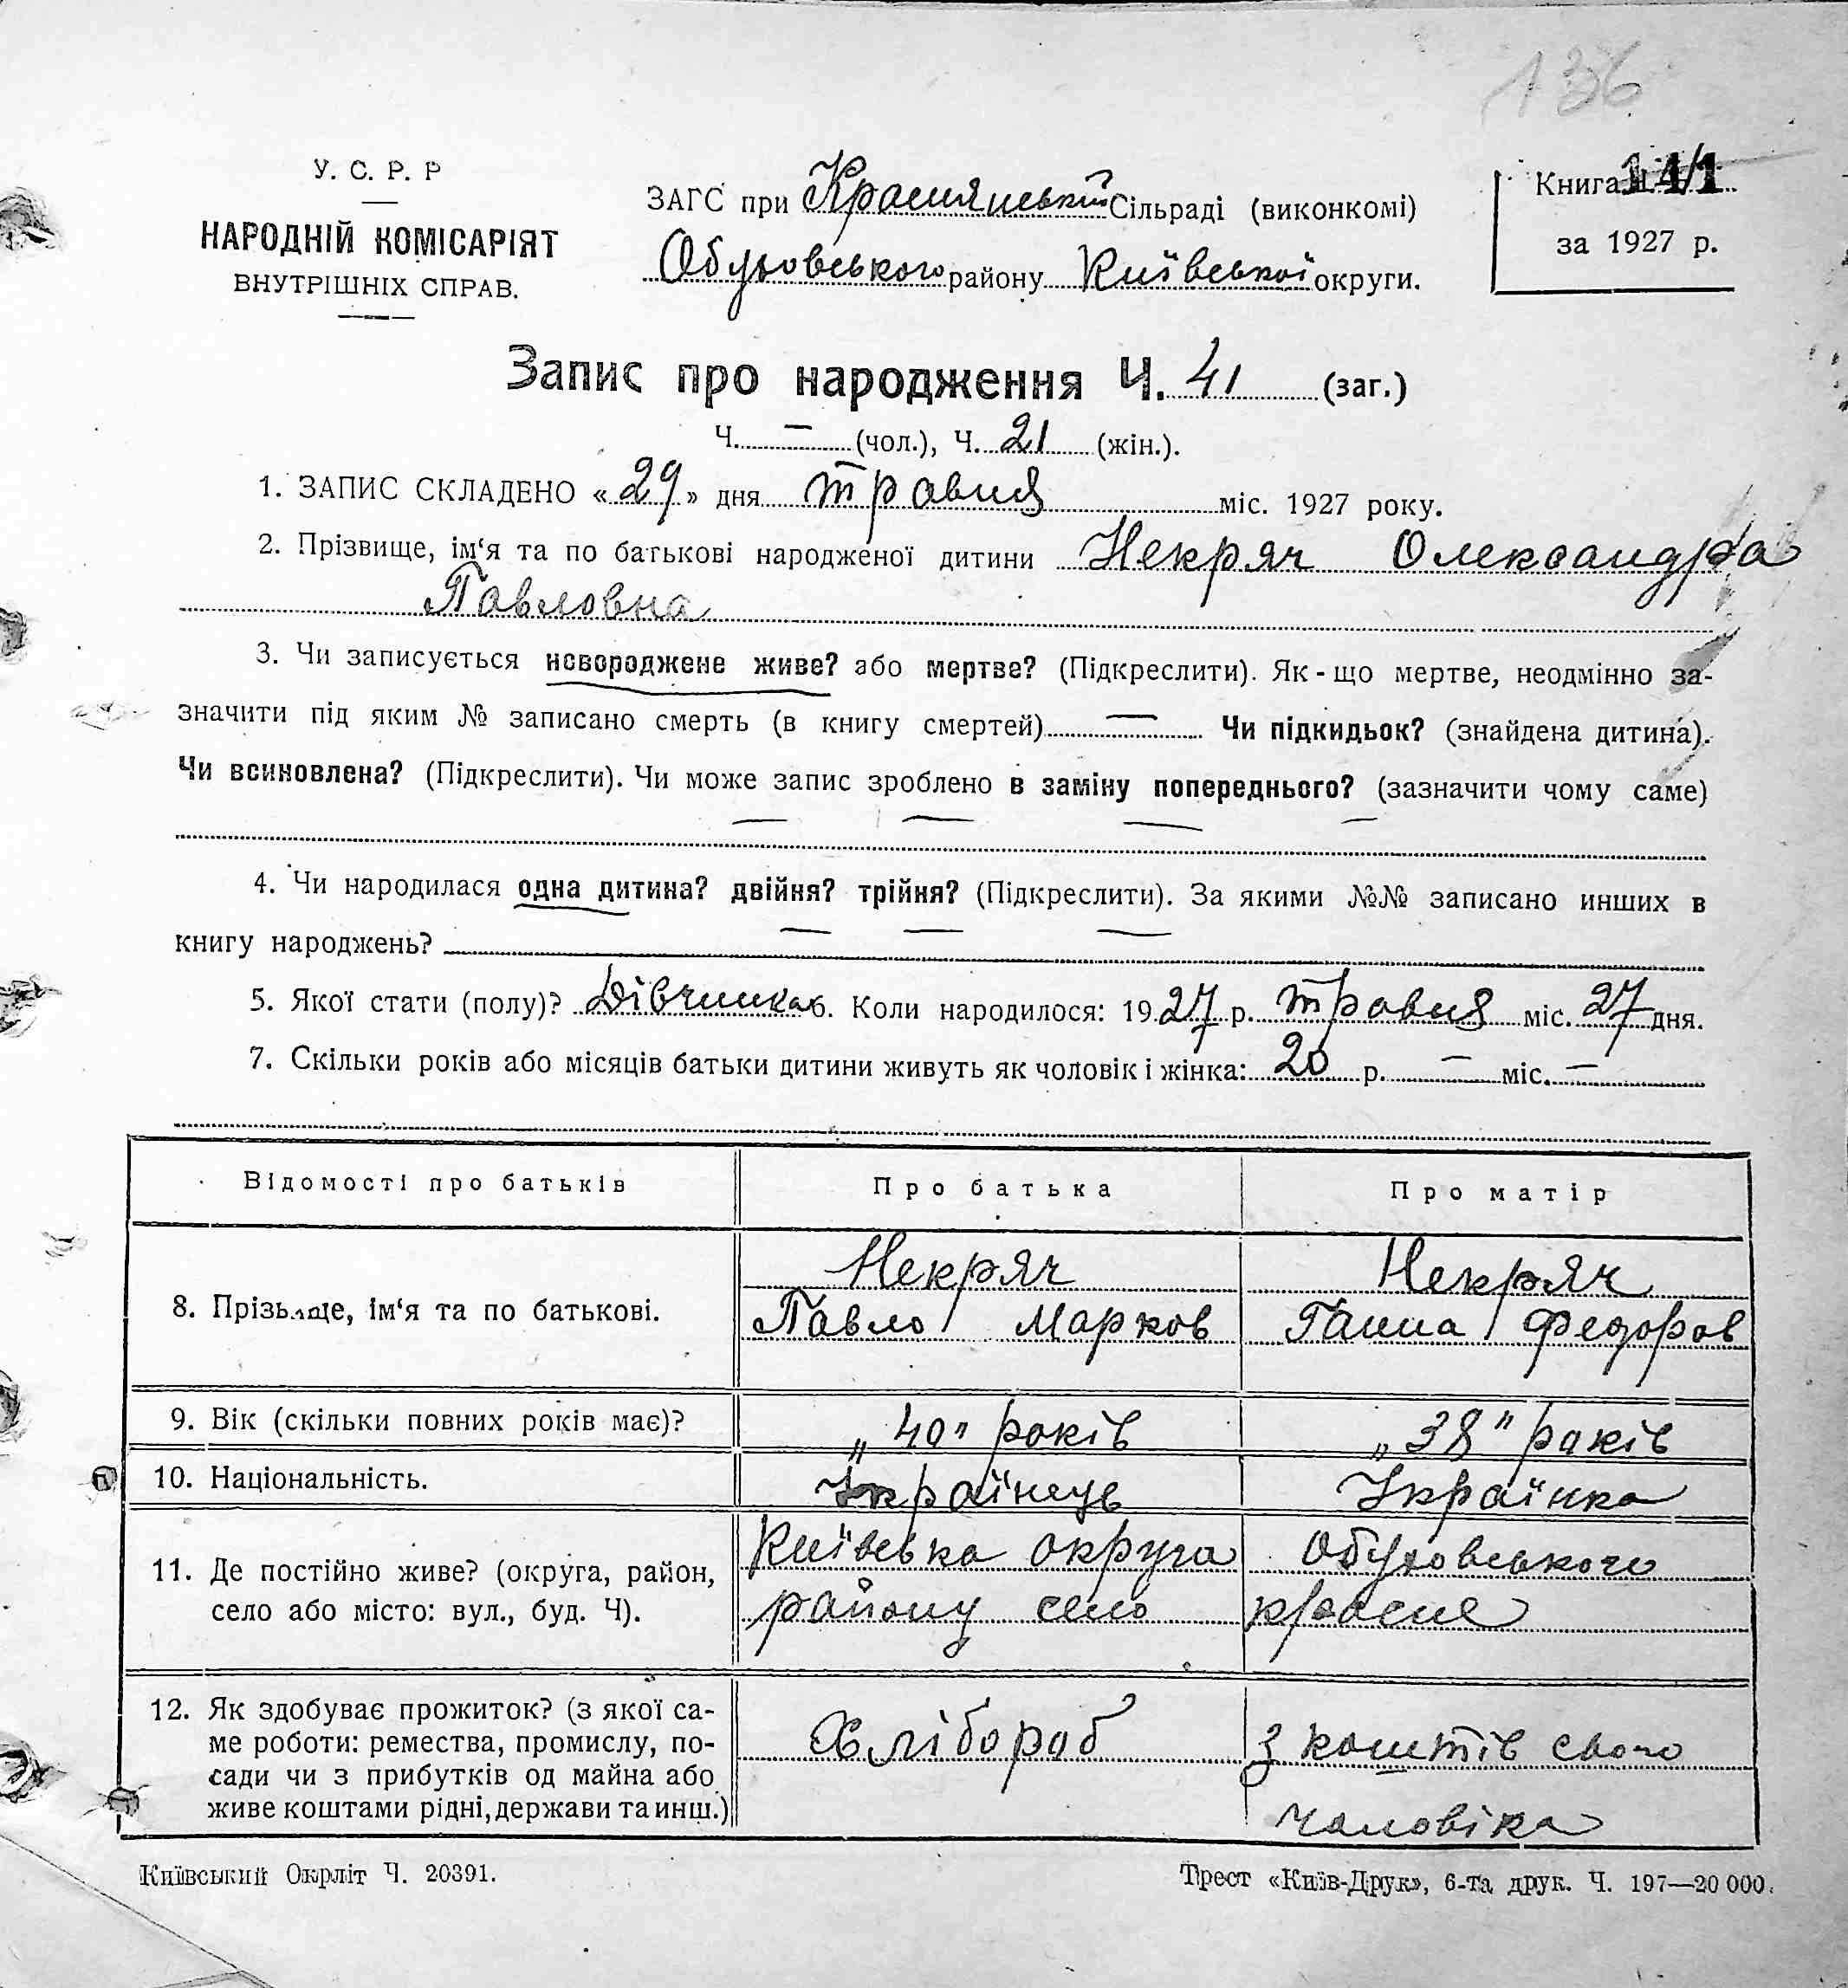 136
У. С. Р. Р
НАРОДНІЙ КОМІСАРІЯТ
ВНУТРІШНІХ СПРАВ.
ЗАГС при Краснянській Сільраді (виконкомі)
Обуховського району Київської округи.
Книга 141
за 1927 р.
Запис про народження Ч. 41 (заг.)
Ч. — (чол.), Ч. 21 (жін.).
1. ЗАПИС СКЛАДЕНО « 29 » дня травня міс. 1927 року.
2. Прізвище, ім‘я та по батькові народженої дитини Некряч Олександра
Павловна
3. Чи записується новороджене живе? або мертве? (Підкреслити). Як - що мертве, неодмінно за-
значити під яким № записано смерть (в книгу смертей) — Чи підкидьок? (знайдена дитина).
Чи всиновлена? (Підкреслити). Чи може запис зроблено в заміну попереднього? (зазначити чому саме)
— — — —
4. Чи народилася одна дитина? двійня? трійня? (Підкреслити). За якими №№ записано инших в
книгу народжень? — — —
5. Якої стати (полу)? Дівчинка 6. Коли народилося: 1927 р. травня міс. 27 дня.
7. Скільки років або місяців батьки дитини живуть як чоловік і жінка: 20 р. — міс. —
Відомості про батьків Про батька Про матір
8. Прізвище, ім‘я та по батькові.
Некряч Некряч
Павло Марков Ганна Федоров
9. Вік (скільки повних років має)? „40" років „38" раків
10. Національність. Українець Українка
11. Де постійно живе? (округа, район,
село або місто: вул., буд. Ч).
Київська округа Обуховського
району село красне
12. Як здобуває прожиток? (з якої са-
ме роботи: ремества, промислу, по-
сади чи з прибутків од майна або
живе коштами рідні, держави та инш.)
Хлібороб з коштів свого
чоловіка
Київський Окрліт Ч. 20391.
Трест «Київ-Друк», 6-та друк. Ч. 197—20 000.